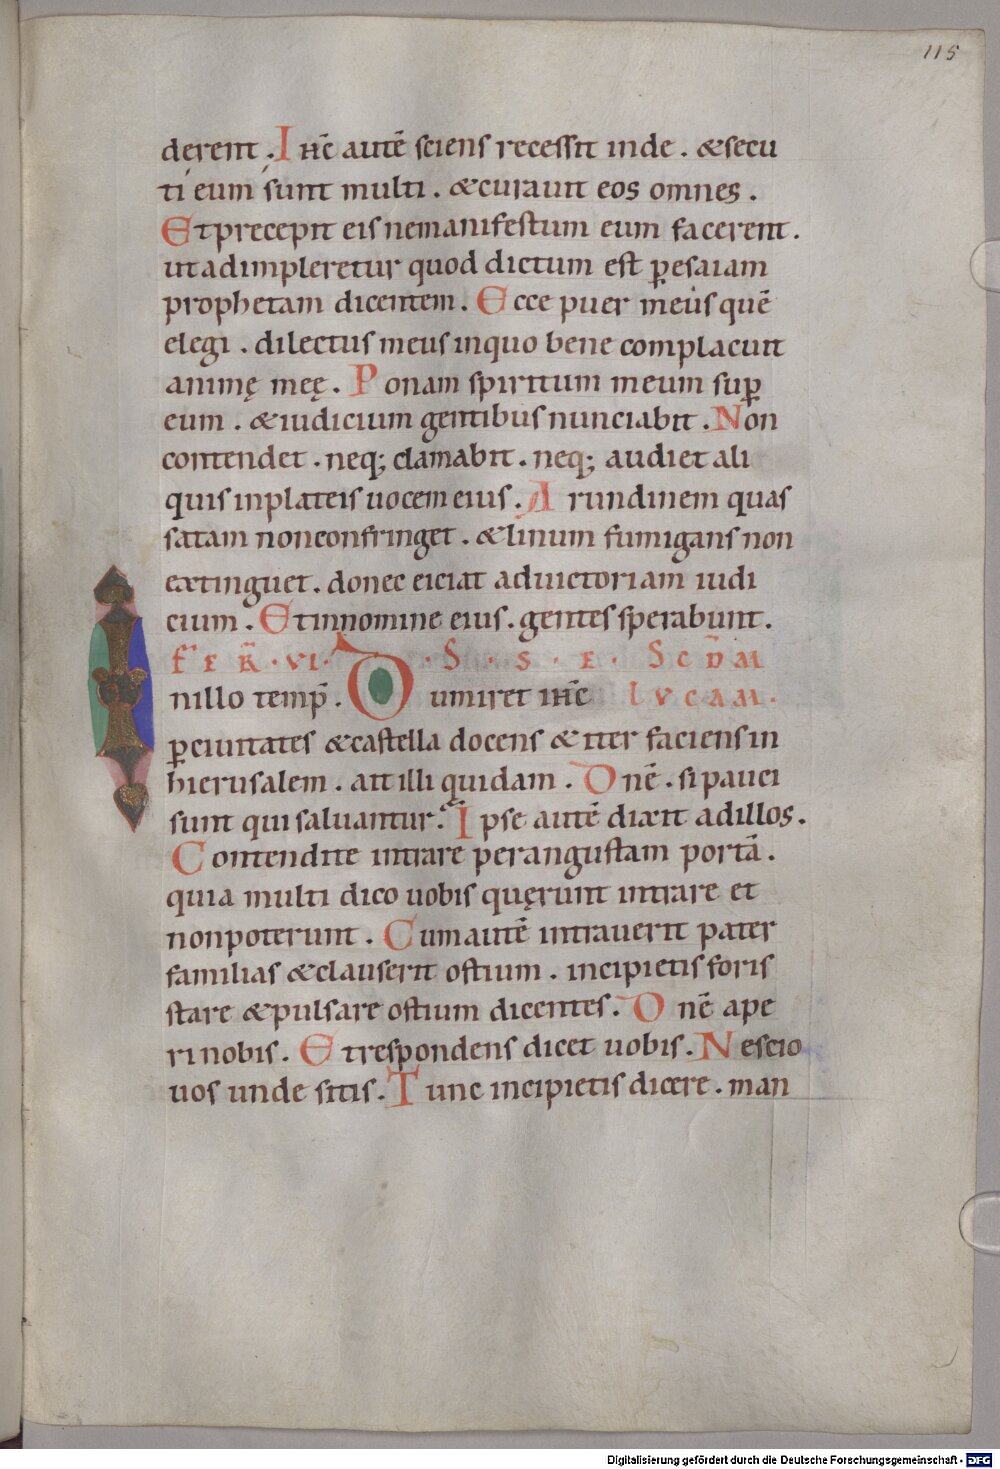 115
derent. Ihc̄ autē sciens recessit inde. &secu
ti eum sunt multi. &curauit eos omnes.
Etprecepit eis nemanifestum eum facerent.
utadimpleretur quod dictum est ꝑesaiam
prophetam dicentem. Ecce puer meus quē
elegi. dilectus meus inquo bene complacuit
animę meę. Ponam spiritum meum suꝑ
eum. &iudicium gentibus nunciabit. Non
contendet. neq; clamabit. neq; audiet ali
quis inplateis uocem eius. Arundinem quas
satam nonconfringet. &linum fumigans non
extinguet. donec eiciat aduictoriam iudi
cium. Etinnomine eius. gentes sperabunt.
FER̄·VI· · S · S · E · SCDM
nillo temp̄. Dumiret ihc̄ LVCAM·
ꝑciuitates &castella docens & iter faciens in
hierusalem. ait illi quidam. Dnē. si pauci
sunt qui saluantur. Ipse autē dixit adillos.
Contendite intrare perangustam portā.
quia multi dico uobis quęrunt intrare et
nonpoterunt. Cumautē intrauerit pater
familias &clauserit ostium. incipietis foris
stare &pulsare ostium dicentes. Dnē ape
ri nobis. Etrespondens dicet uobis. Nescio
uos unde sitis. Tunc incipietis dicere. man
Digitalisierung gefördert durch die Deutsche Forschungsgemeinschaft - DFG